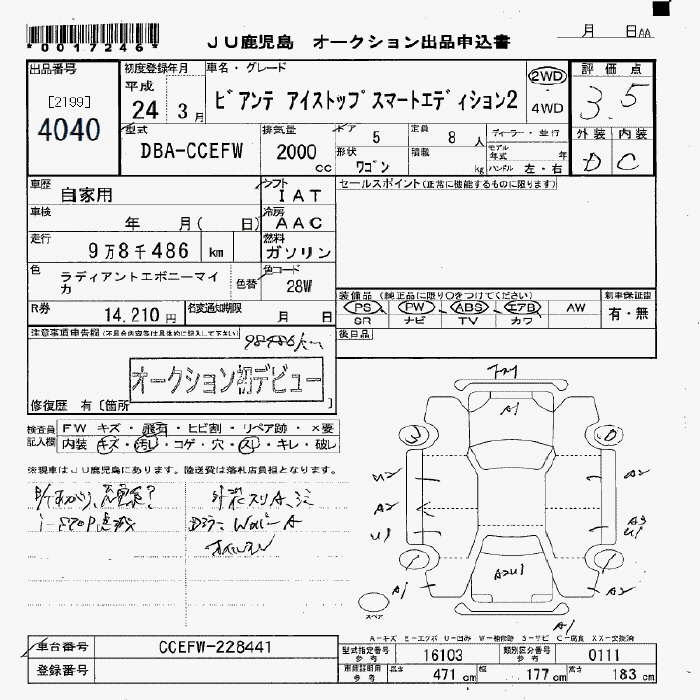 *0017246*
JU鹿児島 オークション出品申込書
月 日AA
出品番号
[2199]
4040
初度登録年月
平成
24 3月
車名・グレード
ビアンテ アイストップスマートエディション2
2WD
4WD
評価点
3.5
外装 内装
D C
型式
DBA-CCEFW
排気量
2000 cc
ドア 5
定員 8人
形状 ワゴン
積載 kg
ディーラー・並行
モデル年式 年
ハンドル 左・右
車歴 自家用
シフト IAT
セールスポイント(正常に機能するものに限ります)
車検 年 月( 日)
冷房 AAC
走行 9万8千486 km
燃料 ガソリン
色 ラディアントエボニーマイカ
色替
色コード 28W
R券 14,210円
名変通知期限 月 日
装備品(純正品に限り○をつけてください)
PS PW ABS エアB AW
SR ナビ TV カワ
新車保証書
有・無
後日品
注意事項申告欄(不具合内容等は具体的に記入して下さい)
98486km
オークション初デビュー
修復歴 有〔箇所 〕
検査員記入欄
FW キズ・飛石・ヒビ割・リペア跡・×要
内装 キズ・汚レ・コゲ・穴・スレ・キレ・破レ
※現車はJU鹿児島にあります。陸送費は落札店負担となります。
i-STOP
A1
3
U2 A2
A2
U1 A3
U1
A2U1
A1 A2
スペア
A1
A-キズ E-エクボ U-凹み W-補修跡 S-サビ C-腐食 XX-交換済
車台番号 CCEFW-228441
登録番号
型式指定番号 参考 16103
類別区分番号 参考 0111
車庫証明用 参考
長さ 471 cm
幅 177 cm
高さ 183 cm